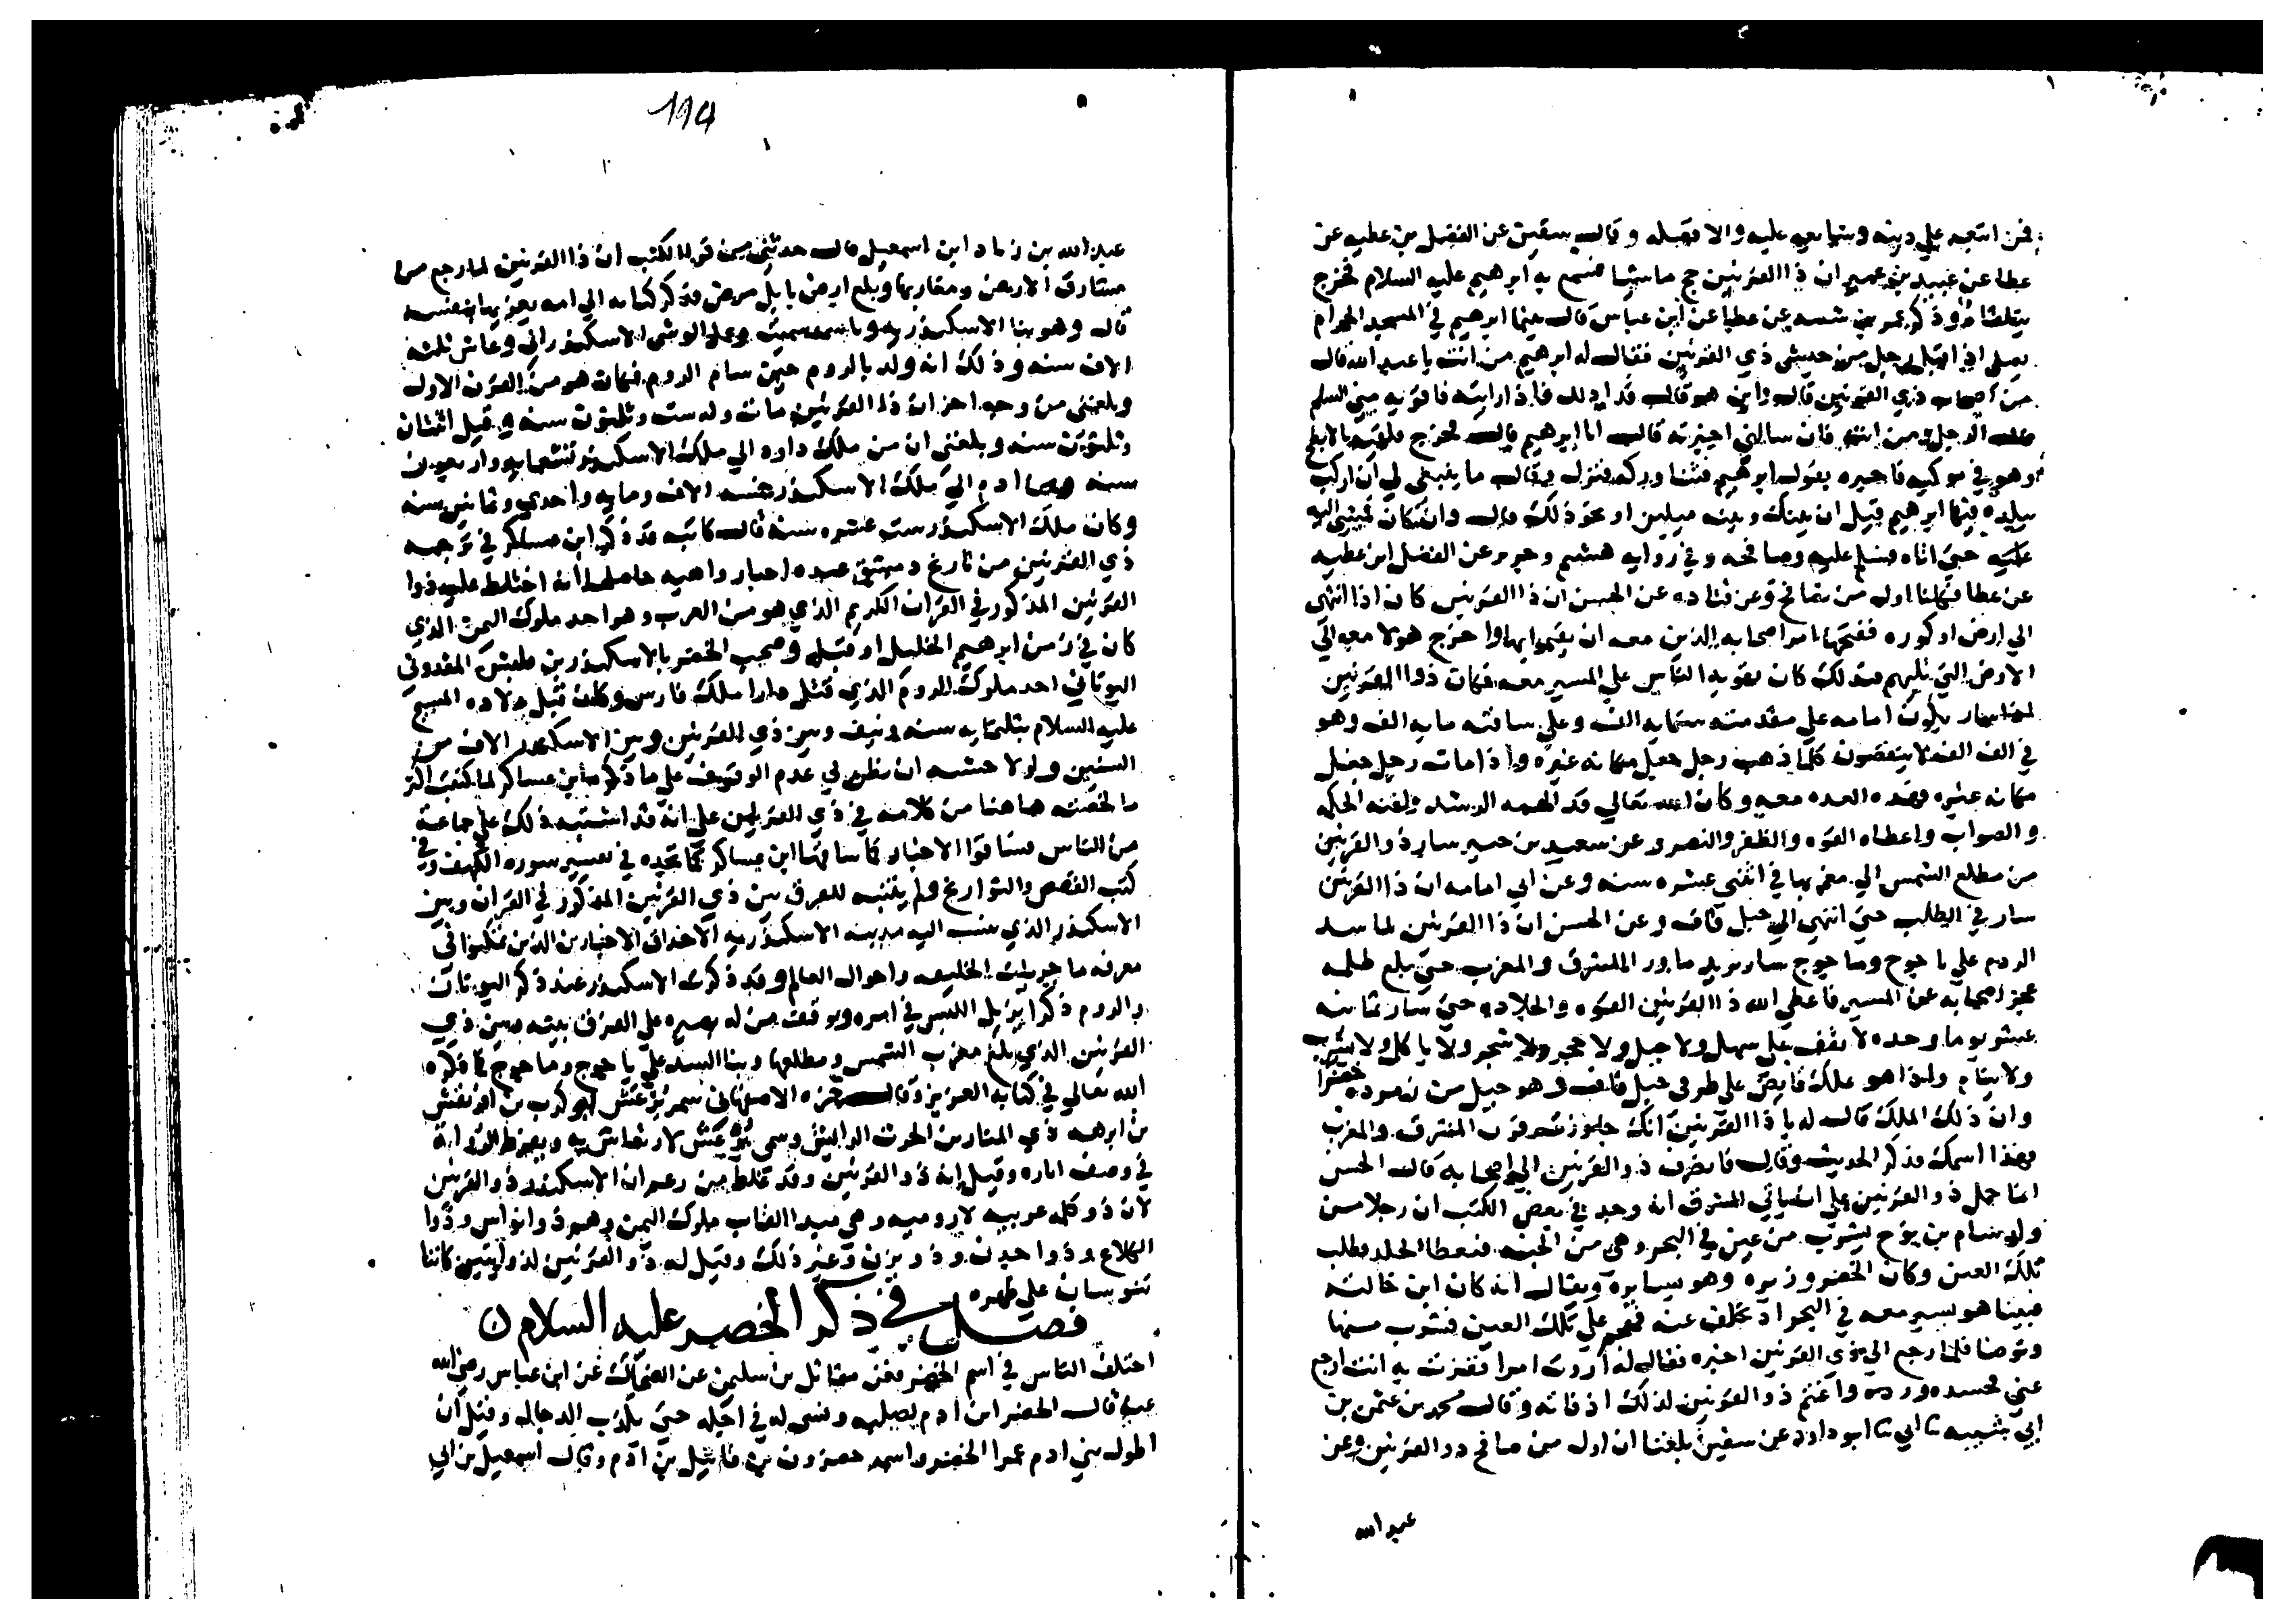 فمن اتبعه علي دينه وتابعه عليه والا قتله وقال سفين عن الفضل بن عطيه عن
عطا عن عبيد بن عمير ان ذا القرنين حج ماشيا فسمع به ابرهيم عليه السلام فخرج
يتلقاه وذكر عمر بن شبه عن عطا عن ابن عباس قال بينما ابرهيم في المسجد الحرام
يصلي اذ اقبل رجل من جيش ذي القرنين فقال له ابرهيم من انت يا عبد الله قال
من اصحاب ذي القرنين قال واين هو قال فاذا رايته فاقريه مني السلم
الرجل من انت فان سالني اخبرته قال انا ابرهيم قال فخرج فلقيه بالابطح
وهو في موكبه فاخبره بقول ابرهيم فثنا وركه فنزل وقال ما ينبغي لي ان اركب
ببلده فيها ابرهيم قيل ان بينك وبينه ميلين او نحو ذلك قال وان كان فمشي اليه
حتي اتاه فسلم عليه وصافحه وفي روايه هشيم وجرير عن الفضل ابن عطيه
عن عطا فكانا اول من تصافح وعن قتاده عن الحسن ان ذا القرنين كان اذا انتهي
الي ارض او كوره ففتحها امر اصحابه الذين معه ان يقيموا بها واخرج هولا معه الي
الارض التي تليهم فبذلك كان يقويه الناس علي المسير معه فكان ذو القرنين
اذا سار يكون امامه علي مقدمته ستمايه الف وعلي ساقته مايه الف وهو
في الف الف لا ينقصون كلما ذهب رجل جعل مكانه غيره واذا مات رجل جعل
مكانه غيره فهذه العده معه وكان الله تعالي قد الهمه الرشد ولقنه الحكمه
والصواب واعطاه القوه والظفر والنصر وعن سعيد بن جبير سار ذو القرنين
من مطلع الشمس الي مغربها في اثنتي عشره سنه وعن ابي امامه ان ذا القرنين
سار في الطلب حتي انتهي الي جبل قاف وعن الحسن ان ذا القرنين لما سد
الردم علي ياجوج وماجوج سار يريد ما ورا المشرق والمغرب حتي بلغ ظلمه
عجز اصحابه عن المسير فاعطي الله ذا القرنين القوه والجلاده حتي سار ثمانيه
عشر يوما وحده لا يقف علي سهل ولا جبل ولا حجر ولا شجر ولا ياكل ولا يشرب
ولا ينام واذا هو بملك قابض علي طرفي جبل قاف وهو جبل من زمرده خضرا
وان ذلك الملك قال له يا ذا القرنين انك جاوزت قرن المشرق والمغرب
فهذا اسمك فذكر الحديث وقال فانصرف ذو القرنين الي اصحابه قال الحسن
انما حمل ذو القرنين علي اتيانه المشرق انه وجد في بعض الكتب ان رجلا من
ولد سام بن نوح يشرب من عين في البحر وهي من الجنه فيعطا الخلد فطلب
تلك العين وكان الخضر وزيره وهو يسايره ويقال انه كان ابن خالته
فبينا هو يسير معه في البحر اذ تخلف عنه فهجم علي تلك العين فشرب منها
وتوضا فلما رجع الي ذي القرنين اخبره فقال له اردت امرا ففزت به انت ارجع
عني فحسده ورده واغتم ذو القرنين لذلك اذ فاته وقال محمد بن عثمن بن
ابي شيبه ثنا ابي ثنا ابو داود عن سفين بلغنا ان اول من صافح ذو القرنين وعن
عبد الله
114
عبد الله بن زياد ابن اسمعيل قال حدثني من قرا الكتب ان ذا القرنين لما رجع من
مشارق الارض ومغاربها وبلغ ارض بابل مرض فذكر كتابه الي امه يعزيها بنفسه
قال وهو بنا الاسكندريه وباسمه سميت وعاش ثلثه
الاف سنه وذلك انه ولد بالروم حين سام الروم فكان هو من القرن الاول
وبلغني من وجه اخر ان ذا القرنين مات وله ست وثلثون سنه وقيل اثنتان
وثلثون سنه وبلغني ان من ملك داود الي ملك الاسكندر سبعمايه واربعون
سنه ومن ادم الي ملك الاسكندر خمسه الاف ومايه واحدي وثمانين سنه
وكان ملك الاسكندر ست عشره سنه قال كاتبه قد ذكر ابن عساكر في ترجمه
ذي القرنين من تاريخ دمشق عده اخبار واهيه حاصلها انه اختلط عليه ذوا
القرنين المذكور في القران الكريم الذي هو من العرب وهو احد ملوك اليمن الذي
كان في زمن ابرهيم الخليل او قبله وصحب الخضر بالاسكندر بن فلبش المقدوني
اليوناني احد ملوك الروم الذي قتل دارا ملك فارس وكان قبل ولاده المسيح
عليه السلام بثلثمايه سنه ونيف وبين ذي القرنين وبين الاسكندر الاف من
السنين ولولا خشيه ان يظن بي عدم الوقوف علي ما ذكره ابن عساكر لما كتبت اكثر
ما لخصته هاهنا من كلامه في ذي القرنين علي انه قد اشتبه ذلك علي جماعه
من الناس فساقوا الاخبار كما ساقها ابن عساكر كما تجده في تفسير سوره الكهف وفي
كتب القصص والتواريخ ولم يتنبه للفرق بين ذي القرنين المذكور في القران وبين
الاسكندر الذي تنسب اليه مدينه الاسكندريه الا حذاق الاخبارين الذين تمكنوا في
معرفه ماجريات الخليقه واحوال العالم وقد ذكرت الاسكندر عند ذكر اليونان
والروم ذكرا يزيل اللبس في امره ويوقف من له بصيره علي الفرق بينه وبين ذي
القرنين الذي بلغ مغرب الشمس ومطلعها وبنا السد علي ياجوج وماجوج كما ذكره
الله تعالي في كتابه العزيز وقال حمزه الاصفهاني سمر يرعش ابو كرب بن افريقش
بن ابرهه ذي المنار بن الحرث الرايش وسمي يرعش لارتعاش به ويفرط الرواه
في وصف اثاره وقيل انه ذو القرنين وقد غلط من زعم ان الاسكندر ذو القرنين
لان ذو كلمه عربيه لا روميه وهي مبدا القاب ملوك اليمن وهم ذوا نواس وذوا
الكلاع وذوا جدن وذو يزن وغير ذلك وقيل له ذو القرنين لذوابتين كانتا
تنوسان علي ظهره
فصل في ذكر الخضر عليه السلام
اختلف الناس في اسم الخضر فعن مقاتل بن سليمن عن الضحاك عن ابن عباس رضي الله
عنه قال الخضر ابن ادم لصلبه ونسي له في اجله حتي يكذب الدجال وقيل ان
اطول بني ادم عمرا الخضر واسمه خضرون بن قابيل بن ادم وقال اسمعيل بن ابي